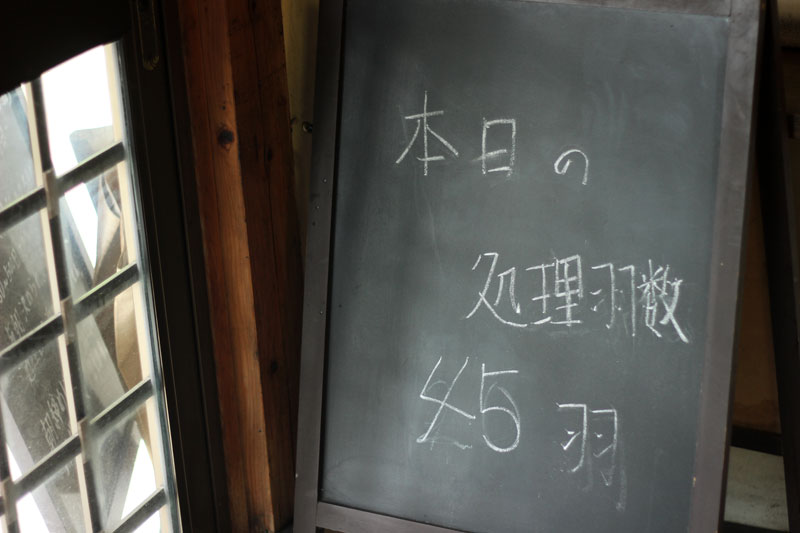 本日の
処理羽数
45羽